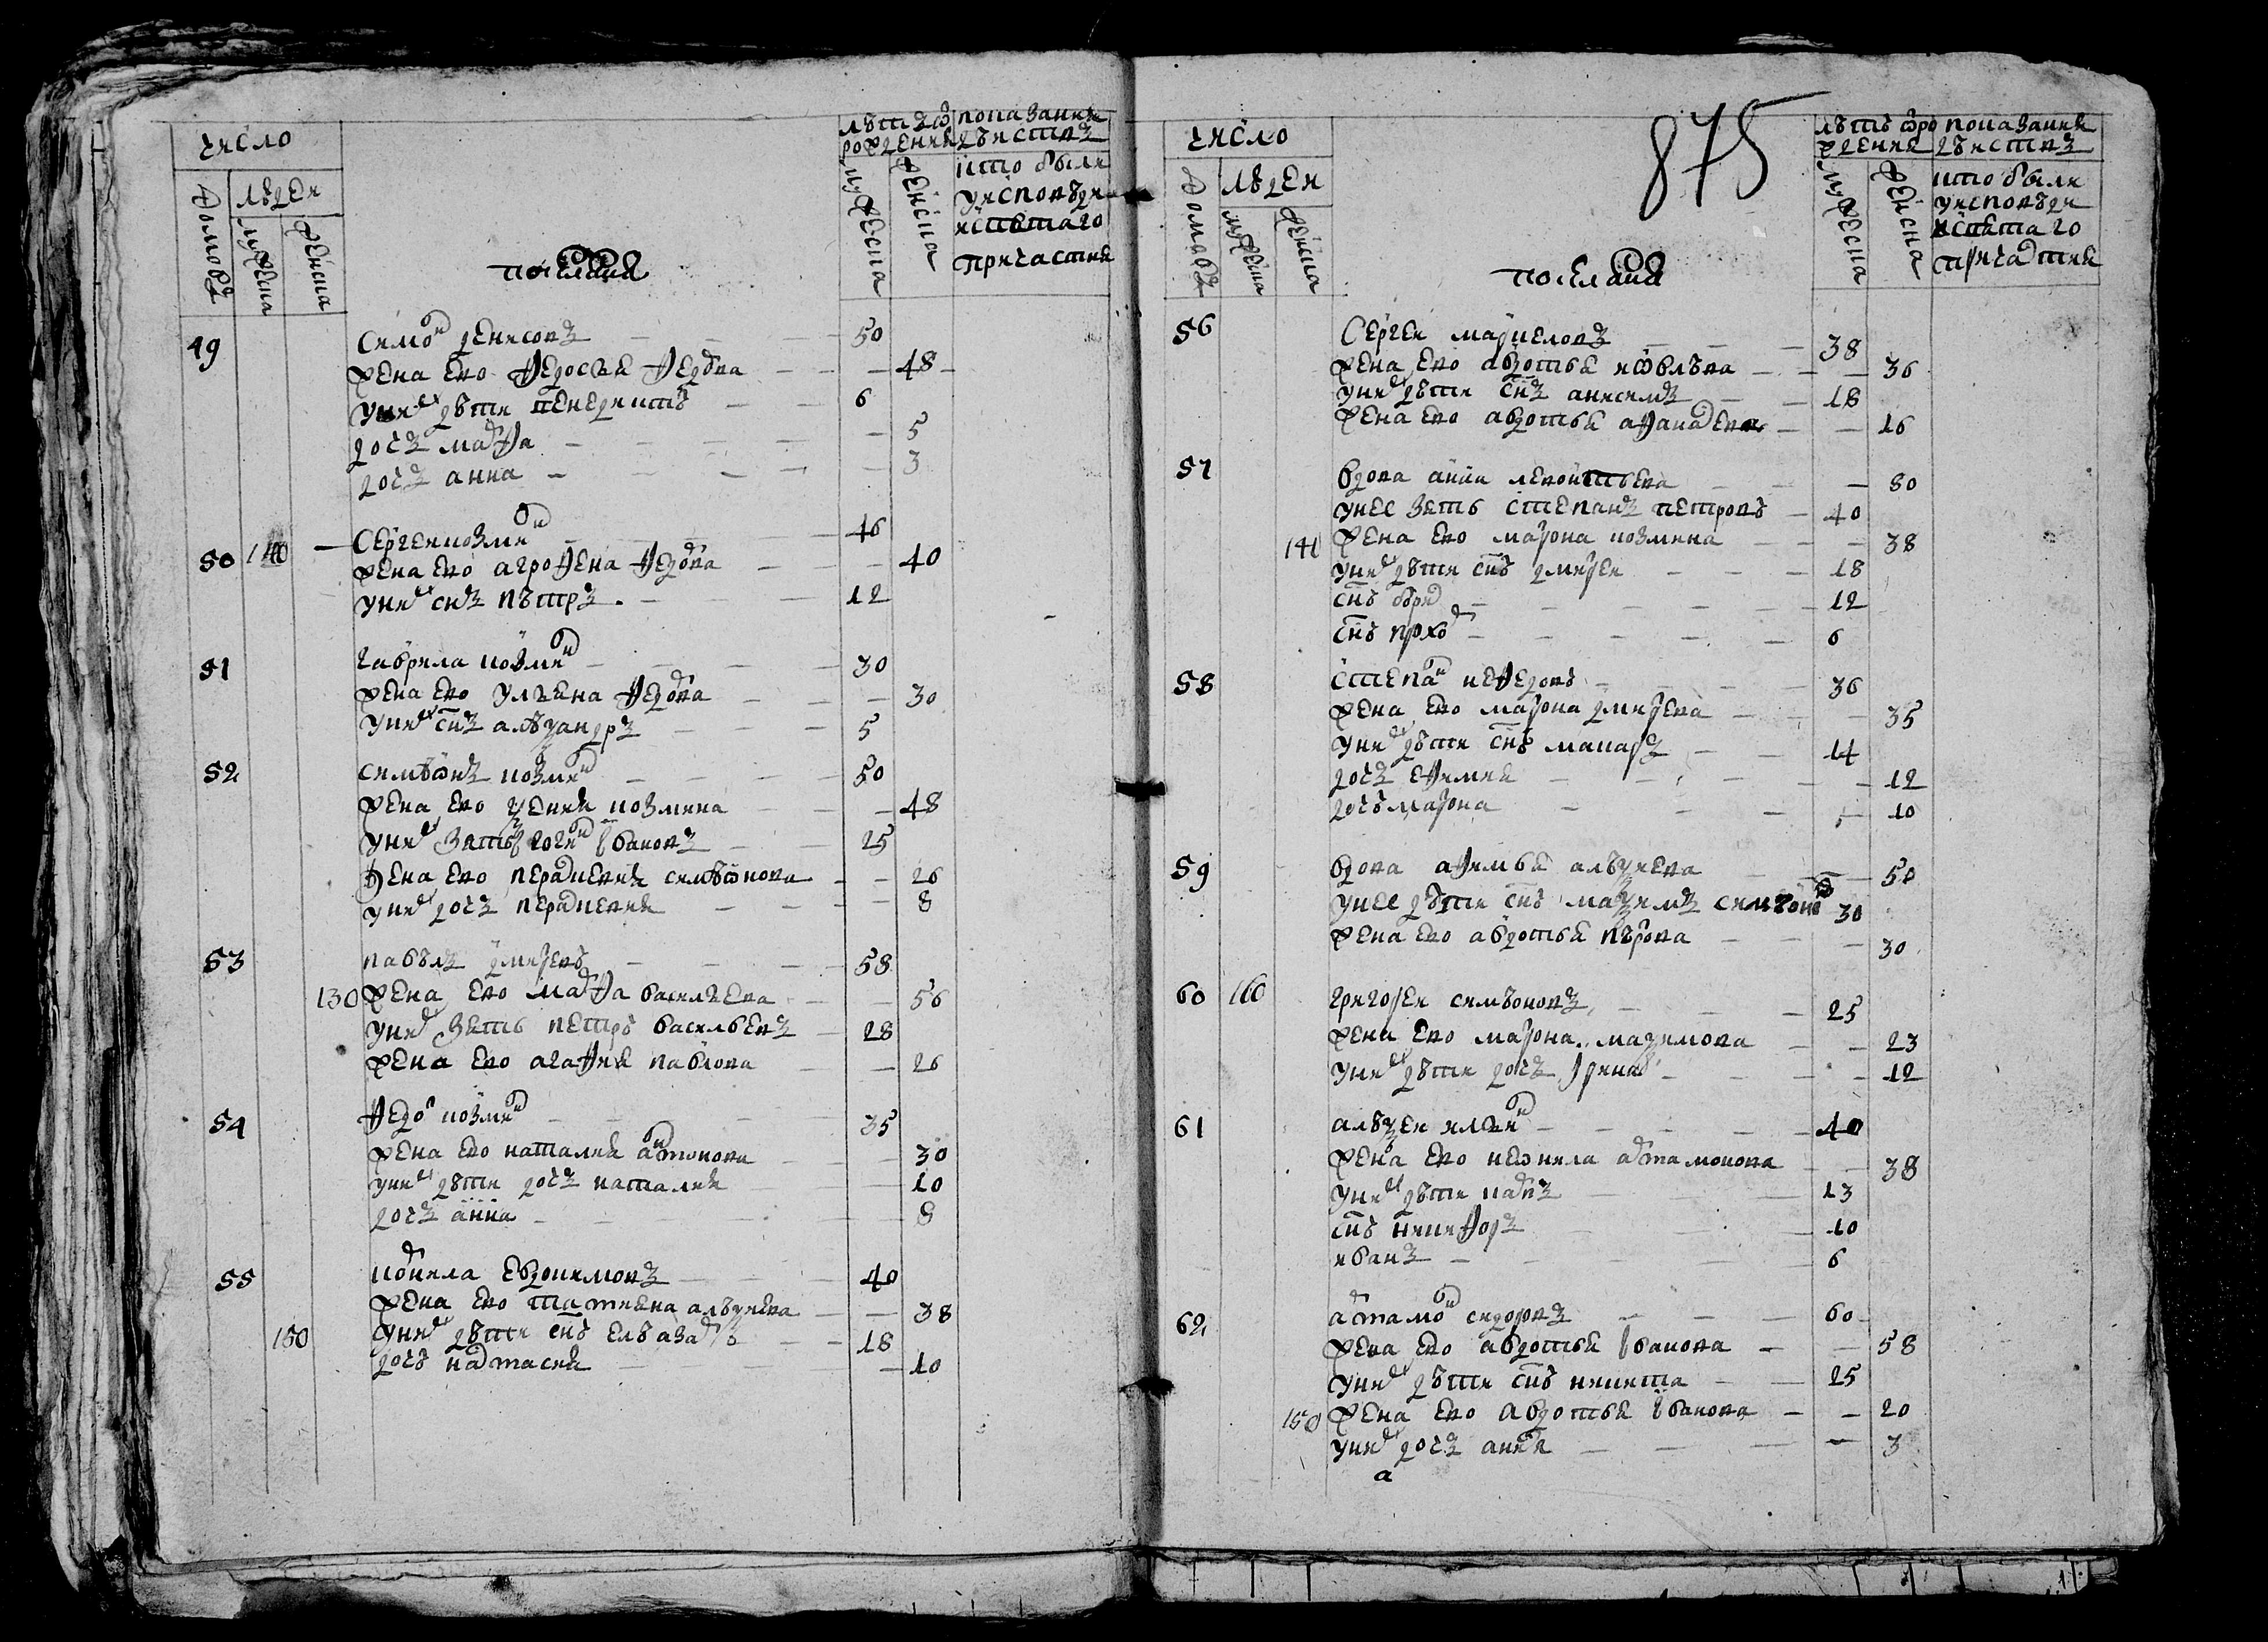 число
домовъ
людеи
мужеска
женска
лѣтъ ѿ
рожде­ния
мужеска
женска
показание
дѣиства
кто были
у исповѣди
и свѣтаго
причастия
посацкия
49 Симонъ Денисовъ 50
жена ево Федосья Федорова 48
у них дѣти 6
дочь Марфа 5
дочь Анна 3
50 140 Сергеи Козминъ 46
жена ево Агрофена Федорова 40
у них снъ Петръ 12
51 Гаврила Козминъ 30
жена ево Ульяна Федорова 30
у них снъ Алѣѯандръ 5
52 Симѣѡнъ Козминъ 50
жена ево Ѯения Козмина 48
у них зять Логинъ Iванов 25
жена ево Перасковия Симѣѡнова 26
у них дочь Перасковия 8
53 Павѣлъ Дмитреевъ 58
130 жена ево Марфа Васильева 56
у них зять Петръ Васильевъ 28
жена ево Агафия Павлова 26
54 Федоръ Козминъ 35
жена ево Наталия Антонова 30
у них дѣти дочь Наталия 10
дочь Анна 8
55 Корнила Евдокимовъ 40
жена ево Татияна Алѣѯиева 38
150 у них дѣти снъ Елѣазаръ 18
дочь Настасия 10
875
число
домовъ
людеи
мужеска
женска
лѣтъ ѿ ро
ждения
мужеска
женска
показания
дѣиства
кто были
у исповѣди
и свѣтаго
причастия
посацкия
56 Сергеи Маркеловъ 38
жена ево Авдотья Иѡвлѣва 36
у них дѣти снъ Анисимъ 18
жена ево Авдотья Афанасева 16
57 вдова Анна Левонтьева 80
у нее зять Степанъ Петровъ 40
141 жена ево Марона Козмина 38
у них дѣти снъ Дмитреи 18
снъ 12
снъ Прохоръ 6
58 Степанъ Нефедовъ 36
жена ево Марона Дмитрева 35
у них дѣти снъ Макаръ 14
дочь Ефимия 12
дочь Марона 10
59 вдова Афимья Алѣѯиева 50
у нее дѣти снъ Маѯимъ Симѣоновъ 30
жена ево Авдотья Пѣрова 30
60 160 Григореи Симѣоновъ 25
жена ево Марона Маѯимова 23
у них дѣти дочь Iрина 12
61 Алѣѯеи Ильинъ 40
жена ево Неѡнила Артамонова 38
у них дѣти Карпъ 13
снъ Никифоръ 10
Иванъ 6
62 Артамонъ Сидоровъ 60
жена ево Авдотья Iванова 58
у них дѣти снъ Никита 25
150 жена ево Авдотья Iванова 20
у них дочь Анна 3
а